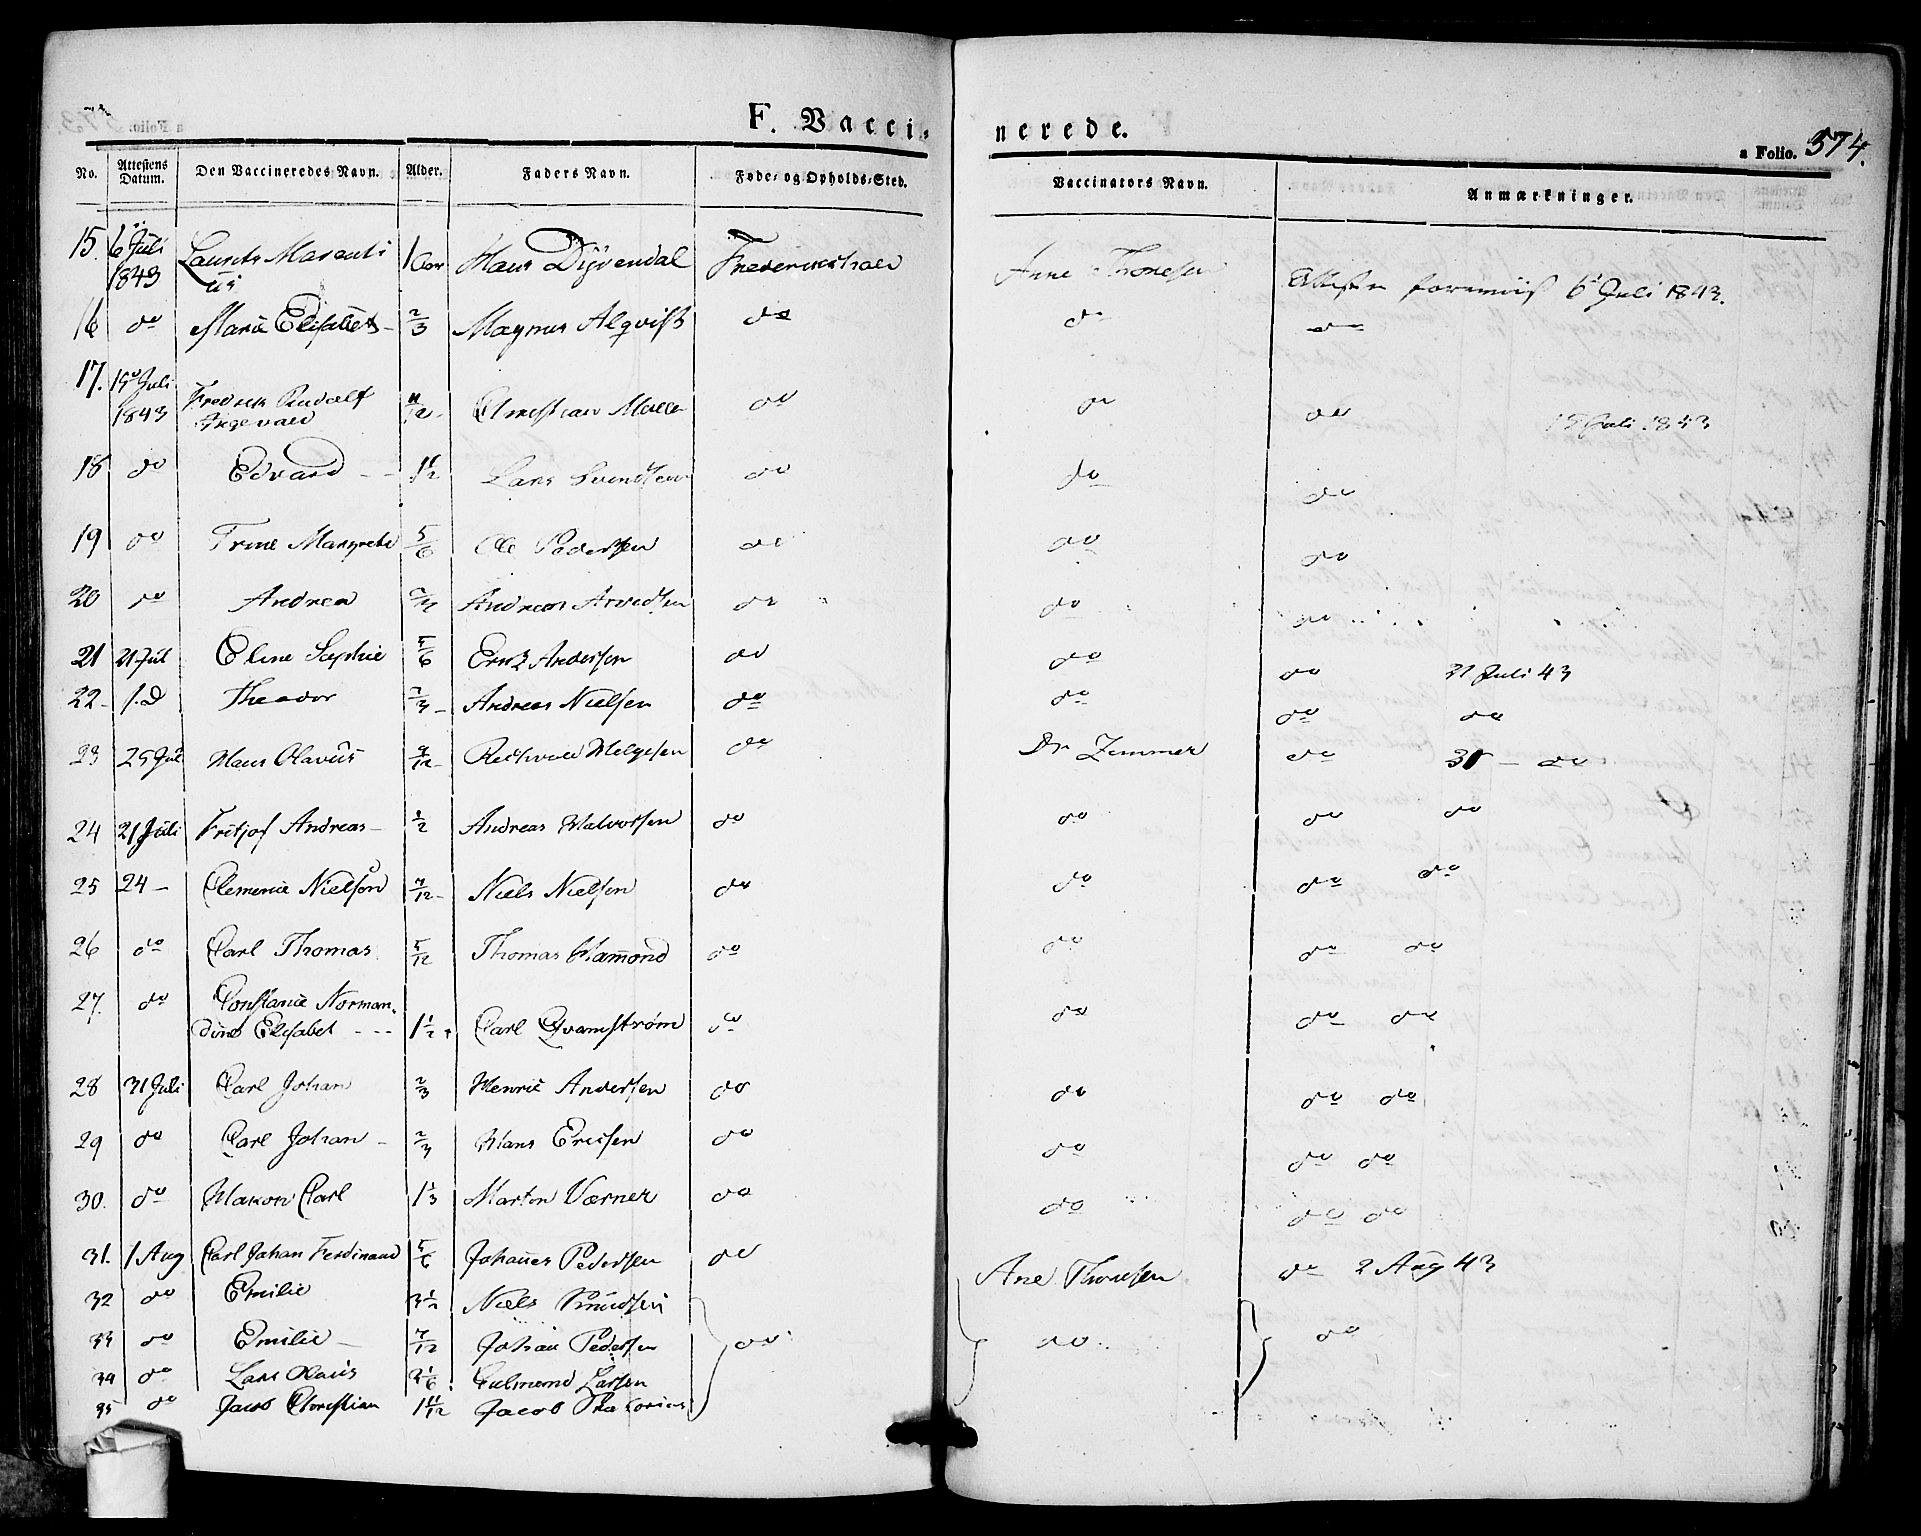 F. Vacci-
nerede.
a Folio. 374.
No. Attestens Datum. Den Vaccineredes Navn. Alder. Faders Navn. Føde- og Opholds-Sted. Vaccinators Navn. Anmærkninger.
15. 6 Juli 1843 Laurits Hans Anne Thonesen 6 Juli 1843.
16 do Marie Elisabeth 2/3 Magnus Alqvist do do do
17. 15 Juli 1843 Fredrik Rudolf 11/12 Christian do do do 15 Juli 1843
18 do Edvard Lars Svendsen do do do
19 do Trine Margrete 5/6 Ole Pedersen do do do
20 do Andrea Andreas Arvedsen do do do
21 21 Jul Eline Sophie 5/6 Andersen do do do 21 Juli 43
22 Theodor Andreas Nielsen do do do do
23 25 Jul Hans Olavus 9/12 Helgesen do Dr Zimmer do 31 do
24 21 Juli Fritjof Andreas 1/2 Andreas Halvorsen do do do do
25 24 Clemence Nielson 7/12 Niels Nielsen do do do do
26 do Carl Thomas 5/12 Thomas Hammond do do do do
27. do Constance Norman-
dine Elisabet 1 1/2 Carl Qvarnstrøm do do do do
28 31 Juli Carl Johan 2/3 Henric Andersen do do do do
29 do Carl Johan 2/3 Hans Ericsen do do do do
30. do Hakon Carl 1 1/3 Morten Værner do do do do
31. 1 Aug Carl Johan Ferdinand 5/6 Johannes Pedersen do Ane Thonesen do 2 Aug 43
32 do Emilie 3 1/2 Niels Knudsen
33 do Emilie 7/12 Johan Pedersen do do do
34 do Lars Larsen
35 do Jacob Christian 1 11/12 Jacob